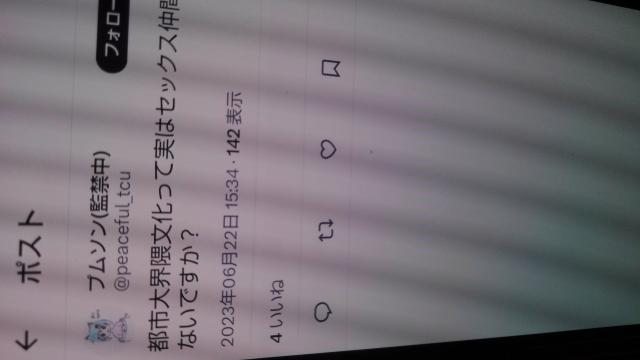 ← ポスト
プムソン(監禁中)
@peaceful_tcu
フォロー
都市大界隈文化って実はセックス仲間
ないですか？
2023年06月22日 15:34 · 142 表示
4 いいね